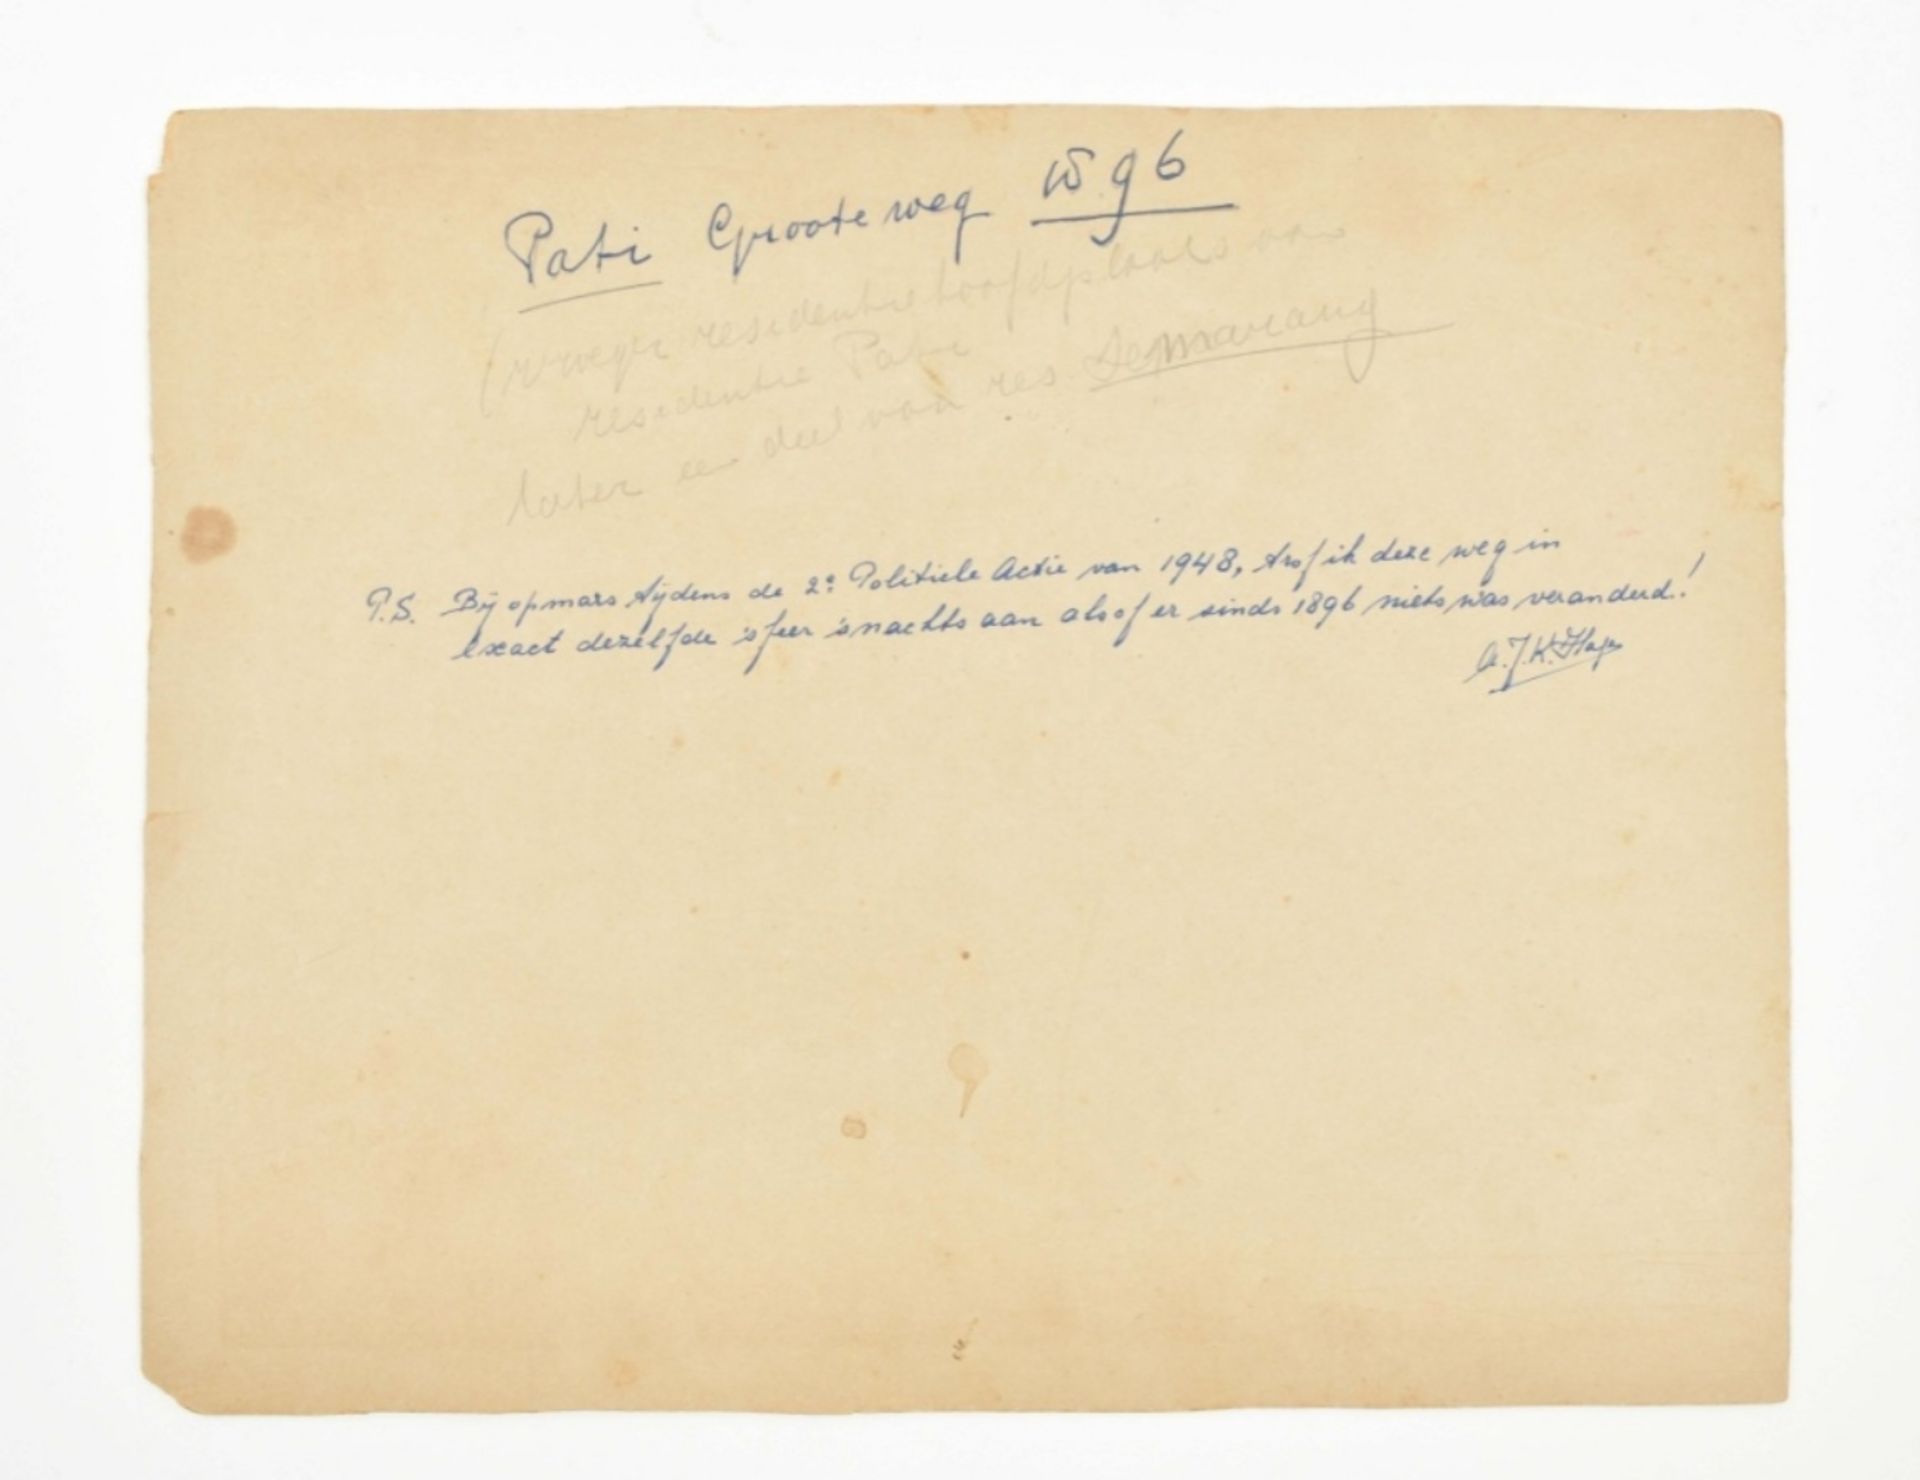 Pati Grooteweg 1896
(vroeger residentiehoofdplaats van
residentie Pati
later een deel van res. Semarang
P.S. Bij opmars tijdens de 2e Politiele Actie van 1948, trof ik deze weg in
exact dezelfde sfeer 's nachts aan alsof er sinds 1896 niets was veranderd!
A.J.K.